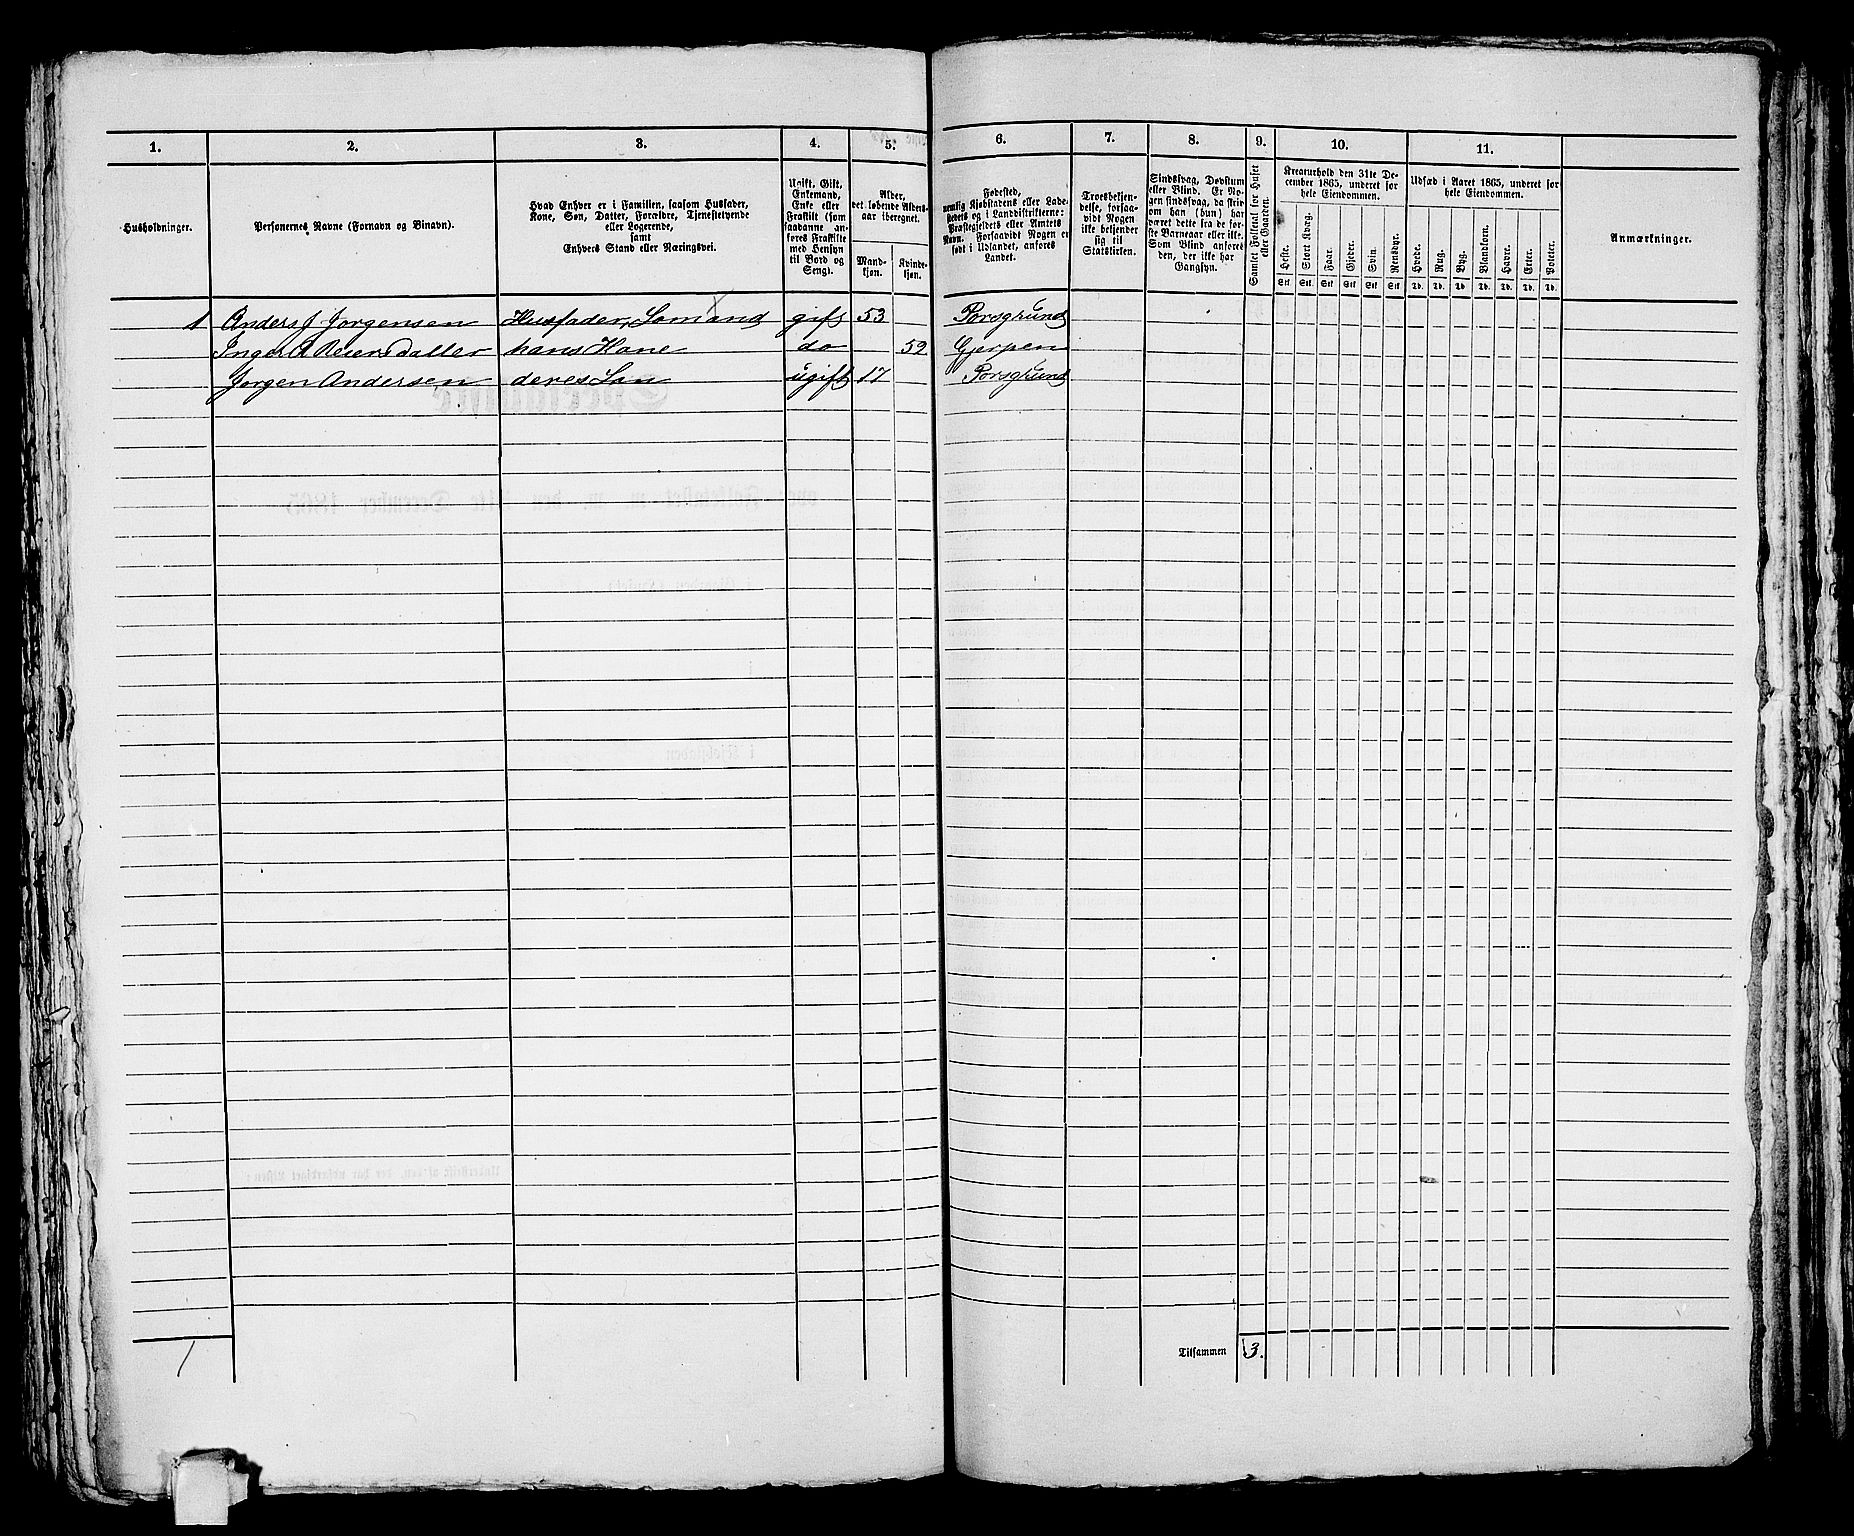 1. 2. 3. 4. 5. 6. 7. 8. 9. 10. 11.
Husholdninger.
Personernes Navne (Fornavn og Binavn).
Hvad Enhver er i Familien, saasom Husfader,
Kone, Søn, Datter, Forældre, Tjenestetyende
eller Logerende,
samt
Enhvers Stand eller Næringsvei.
Ugift, Gift,
Enkemand,
Enke eller
Fraskilt (som
saadanne anføres Fraskilte
med Hensyn
til Bord og
Seng).
Alder,
det løbende Alders-
aar iberegnet.
Mand-
kjøn.
Kvinde-
kjøn.
Fødested,
nemlig Kjøbstadens eller Lade-
stedets og i Landdistrikterne:
Præstegjeldets eller Amtets
Navn. Forsaavidt Nogen er
født i Udlandet, anføres
Landet.
Troesbekjen-
delse, forsaa-
vidt Nogen
ikke bekjender
sig til
Statskirken.
Sindssvag, Døvstum
eller Blind. Er No-
gen sindssvag, da skriv
om han (hun) har
været dette fra de før-
ste Barneaar eller ikke.
Som Blind anføres
den, der ikke har
Gangsyn.
Samlet Folketal for Huset
eller Gaarden.
Kreaturhold den 31te De-
cember 1865, underet for
hele Eiendommen.
Heste. Stort Kvæg. Faar. Gjeder. Svin. Rensdyr.
Stk Stk. Stk Stk Stk Stk
Udsæd i Aaret 1865, underet for
hele Eiendommen.
Hvede. Rug. Byg. Blandkorn. Havre. Erter. Poteter.
Td. Td. Td Td. Td. Td. Td.
Anmærkninger.
1 Anders J Jorgensen Husfader, Somand gift 53 Porsgrund
Inger Reiersdatter hans Kone do 52 Gjerpen
Jorgen Andersen deres Søn ugift 17 Porsgrund
1
Tilsammen 3.